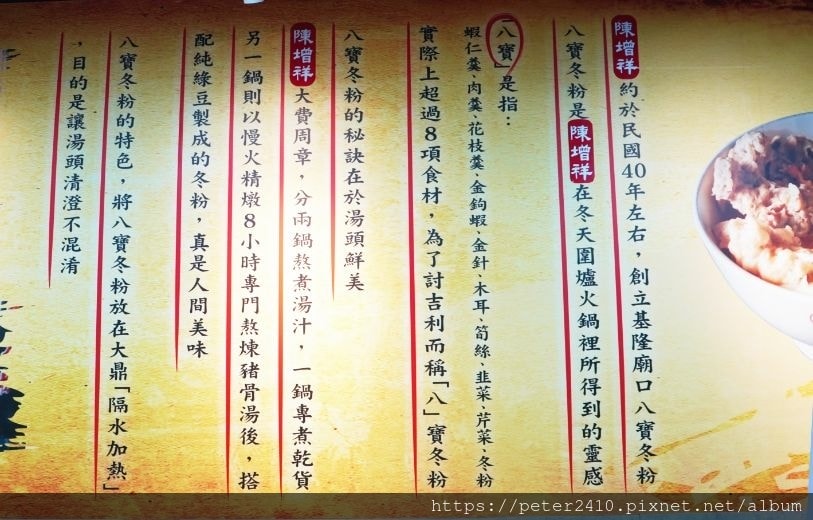 陳增祥約於民國40年左右，創立基隆廟口八寶冬粉
八寶冬粉是陳增祥在冬天圍爐火鍋裡所得到的靈感
「八寶」是指：
蝦仁羹、肉羹、花枝羹、金鉤蝦、金針、木耳、筍絲、韭菜、芹菜、冬粉
實際上超過8項食材，為了討吉利而稱「八」寶冬粉
八寶冬粉的秘訣在於湯頭鮮美
陳增祥大費周章，分兩鍋熬煮湯汁，一鍋專煮乾貨
另一鍋則以慢火精燉8小時專門熬煉豬骨湯後，搭
配純綠豆製成的冬粉，真是人間美味
八寶冬粉的特色，將八寶冬粉放在大鼎「隔水加熱」
，目的是讓湯頭清澄不混淆
https://peter2410.pixnet.net/album